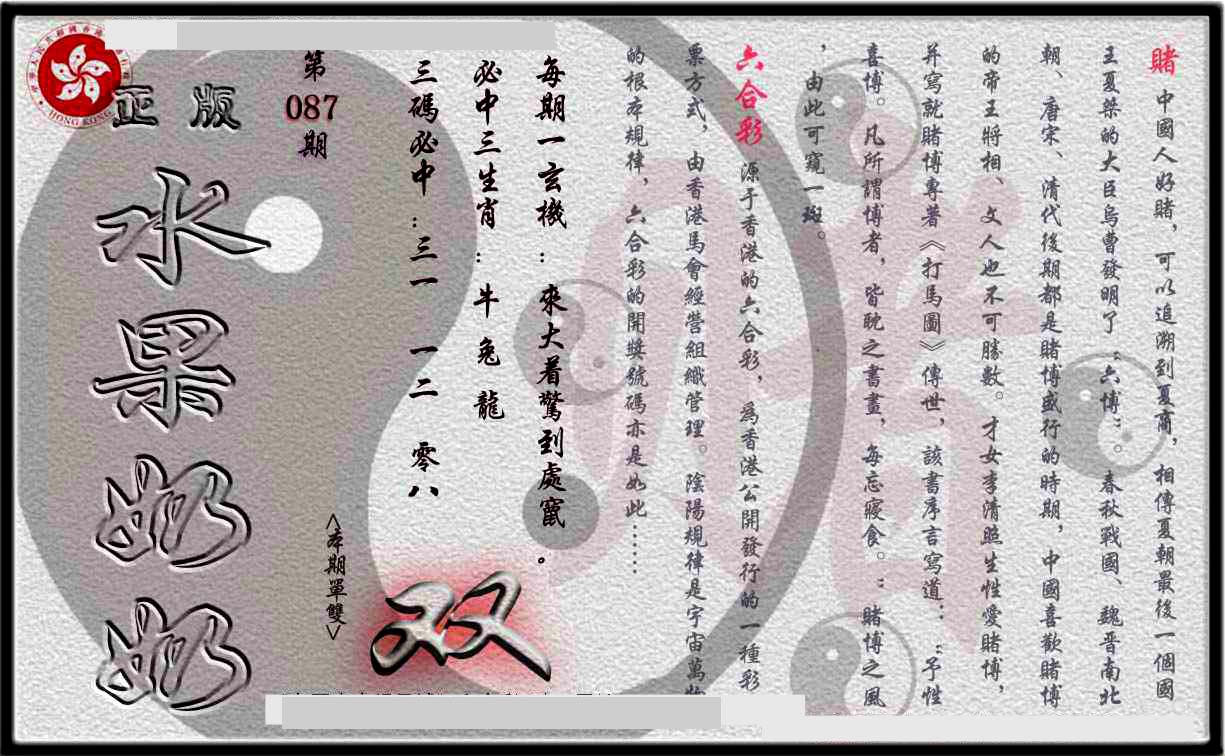 賭 中國人好賭，可以追溯到夏商，相傳夏朝最後一個國
王夏桀的大臣烏曹發明了“六博”。春秋戰國、魏晋南北
朝、唐宋、清代後期都是賭博盛行的時期，中國喜歡賭博
的帝王將相、文人也不可勝數。才女李清照生性愛賭博，
并寫就賭博專著《打馬圖》傳世，該書序言寫道：“予性
喜博。凡所謂博者，皆耽之書畫，每忘寢食。”賭博之風
，由此可窺一斑。
六合彩 源于香港的六合彩，爲香港公開發行的一種彩
票方式，由香港馬會經營組織管理。陰陽規律是宇宙萬物
的根本規律，六合彩的開獎號碼亦是如此……
每期一玄機：來大着驚到處竄。
必中三生肖：牛 兔 龍
三碼必中：三一 一二 零八
第
087
期
<本期單雙>
双
正版
水果奶奶
HONG KONG